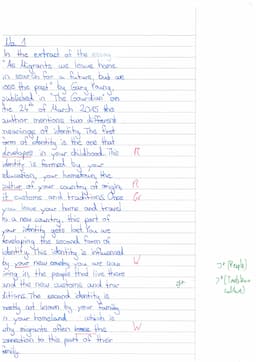 No. 1
In the extract of the essay
"As Migrants we leave home
in search for a future, but we
lose the past" by Gary Young,
published in "The Guardian" on
the 24th of March 2015 the
author mentions two different
meanings of identity. The first
form of identity is the one that
developes in your childhood. This R
identity is formed by your
education, your hometown, the
culture of your country of origin, R
it customs and traditions. Once Gr
you leave your home and travel
to a new country, this part of
your identity gets lost. You are
developing the second form of
identity. This identity is influenced
by your new country you are now W
living in, the people that live there
and the new customs and tra-
ditions. The second identity is
mostly not known by your family
in your homeland which is
why migrants often lose the W
connection to this part of their
family.
(People)